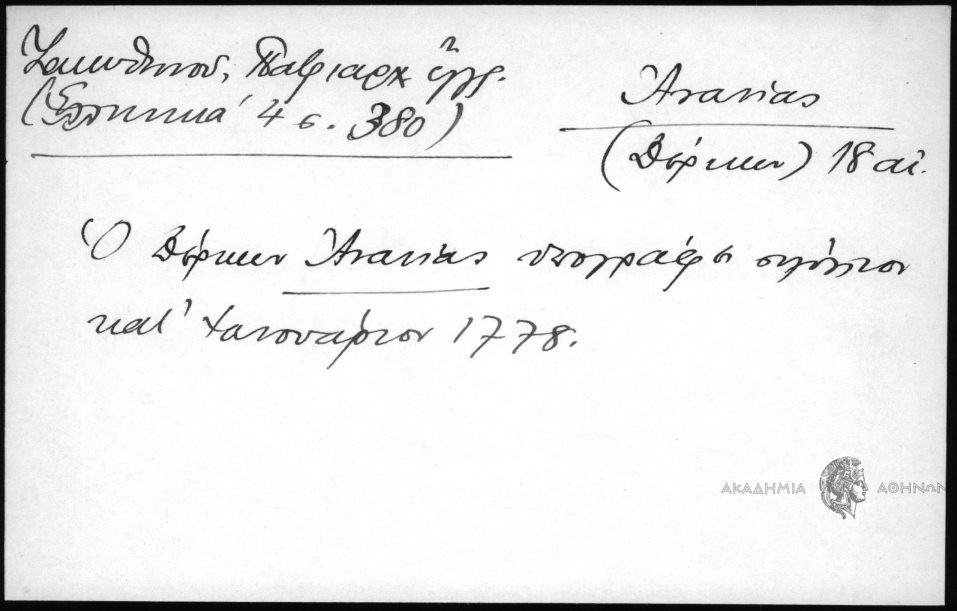 Ζακυθηνοῦ, Πατριαρχ. ἔγγρ.
(Ἑλληνικά 4 σ. 380)
Ἀνανίας
(Δέρκων) 18 αἰ.
Ὁ Δέρκων Ἀνανίας ὑπογράφει σιγίλλιον
κατ' Ἰανουάριον 1778.
ΑΚΑΔΗΜΙΑ ΑΘΗΝΩΝ